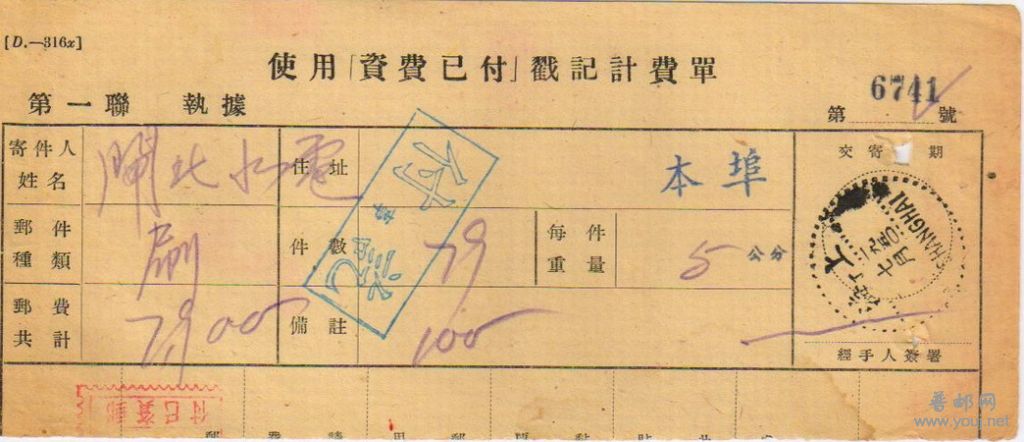 [D.—316x]
使用「資費已付」戳記計費單
第一聯 執據
第 6741 號
寄件人姓名 閘北水電
住址 本埠
交寄 期
郵件種類 刷
件數 79
每件重量 5 公分
郵費共計 7900
備註 100
SHANGHAI
經手人簽署
付已資郵
普邮网
www.youj.net